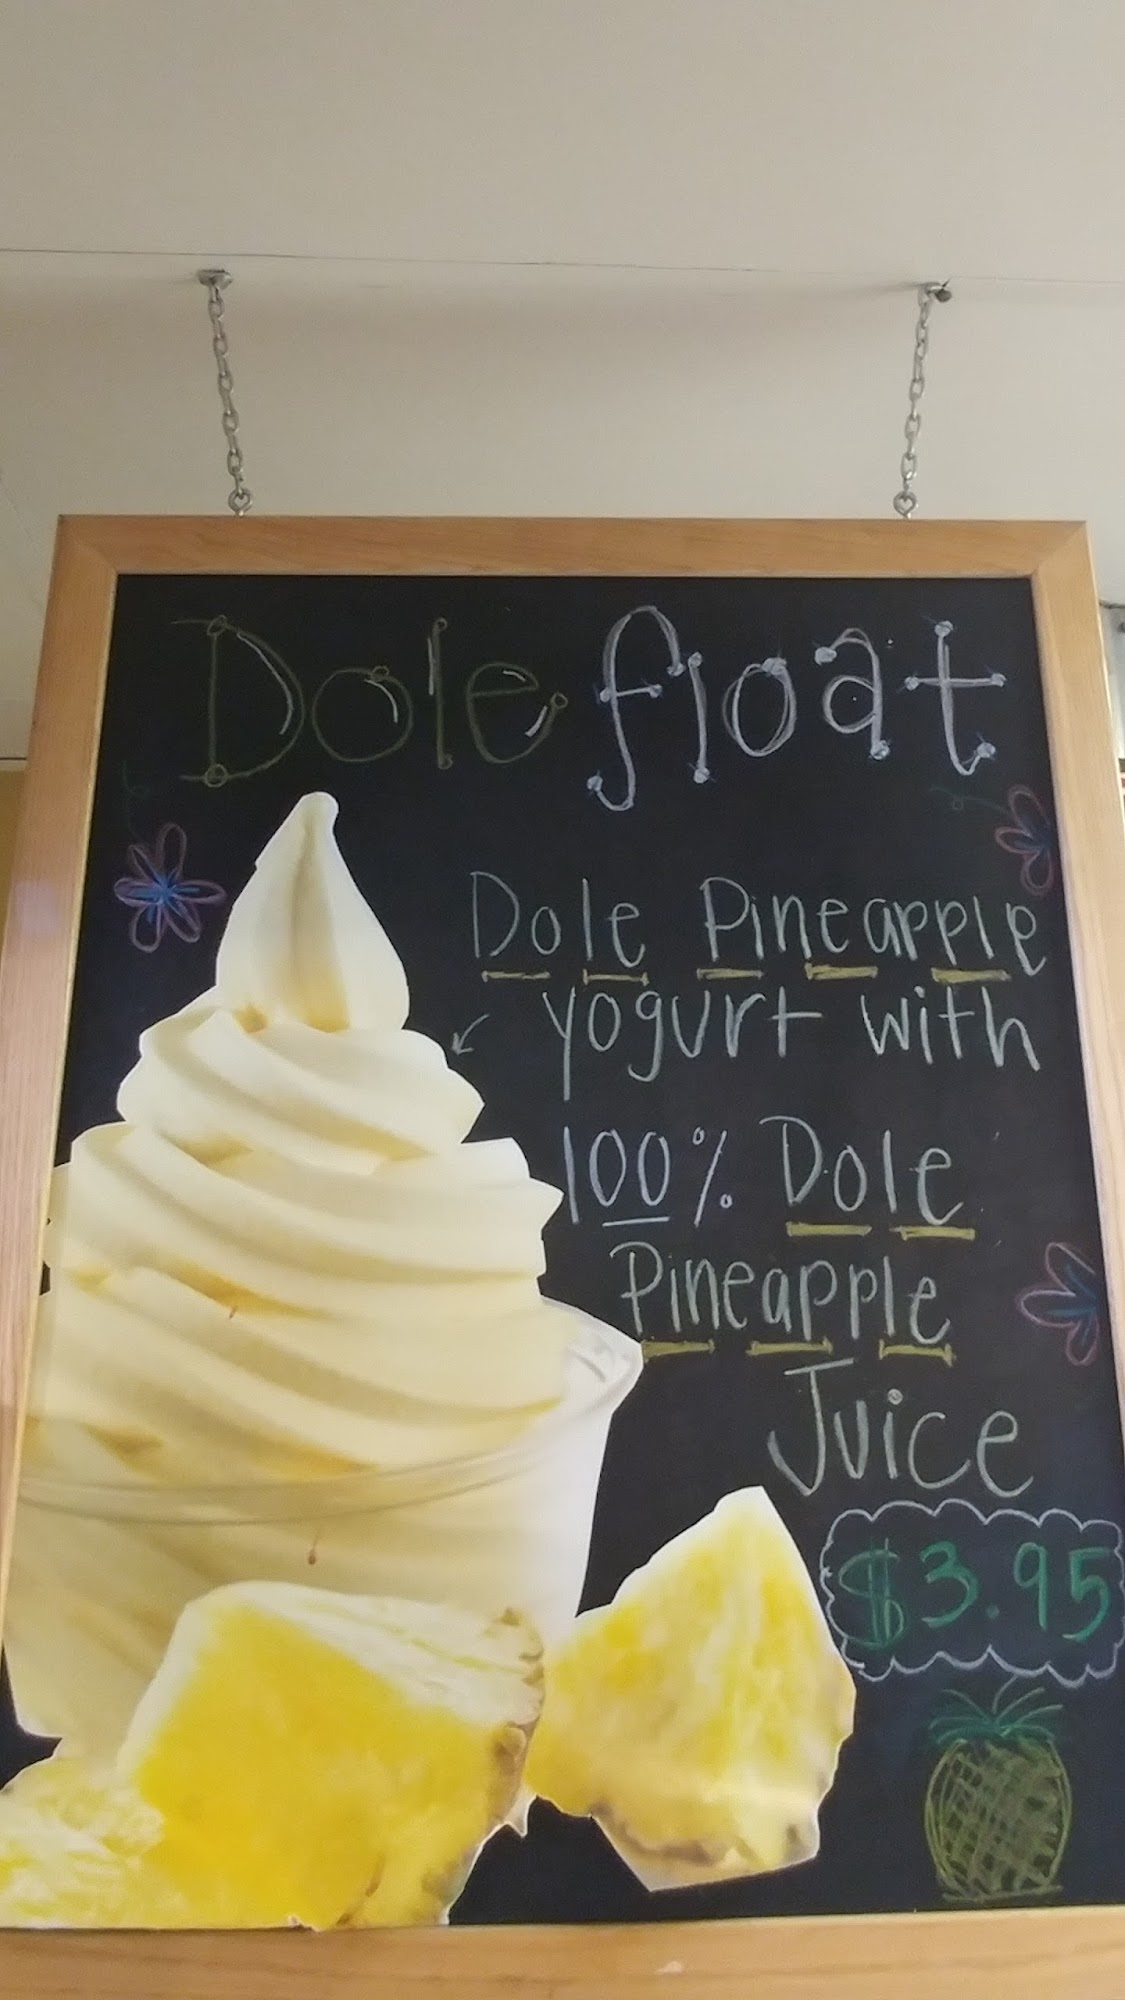 Dole float
Dole Pineapple
yogurt with
100% Dole
Pineapple
Juice
$3.95